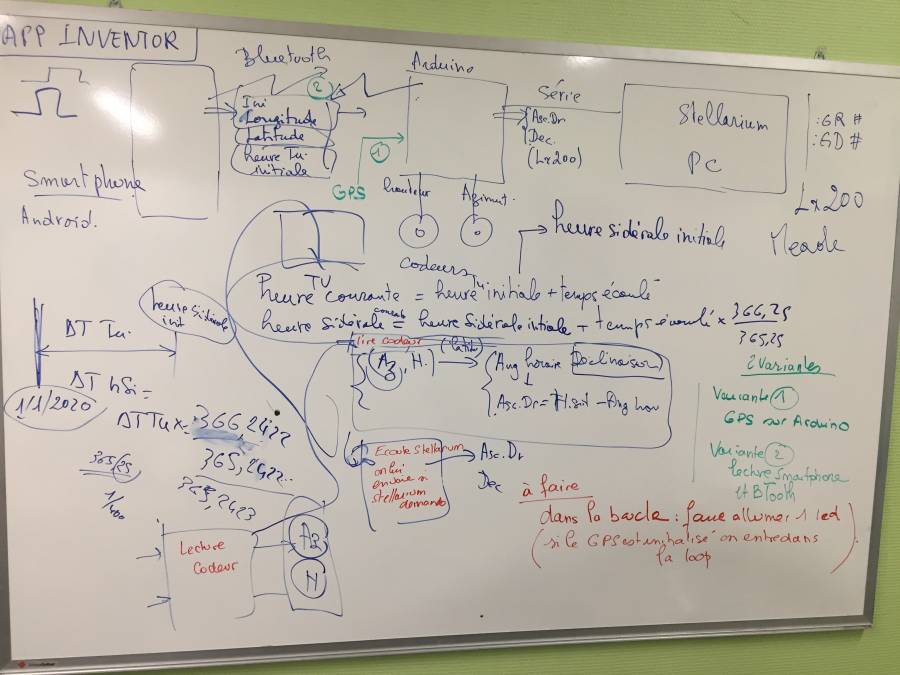 APP INVENTOR
Bluetooth
Arduino
2
Ini
Longitude
Latitude
heure Tu
initiale
Série
Asc.Dr
Dec.
(Lx200)
Stellarium
PC
:GR #
:GD #
1
GPS
Smartphone
Android.
hauteur
Azimut.
Lx200
Meade
codeurs
heure sidérale initiale
TU
Tu
heure courante = heure initiale + temps écoulé
heure sidérale = heure sidérale intiale + temps écoulé × 366,25
365,25
heure sidérale
init
ΔT Tu.
ΔT hSi =
1/1/2020
ΔT Tu x 366,2422
365,2422..
365,2423
365/25
1/400
lire codeur
(Az, H.)
(latitu)
Ang horaire Déclinaison
Asc.Dr = H.sid - Ang hor
2 Variantes
Variante 1
GPS sur Arduino
Variante 2
lecture smartphone
et BTooth
Ecoute Stellarium
on lui
envoie si
stellarium
demande
Asc.Dr
Dec
à faire
dans la boucle : faire allumer 1 led
(si le GPS est initialisé on entre dans
la loop)
Lecture
Codeur
Az
H